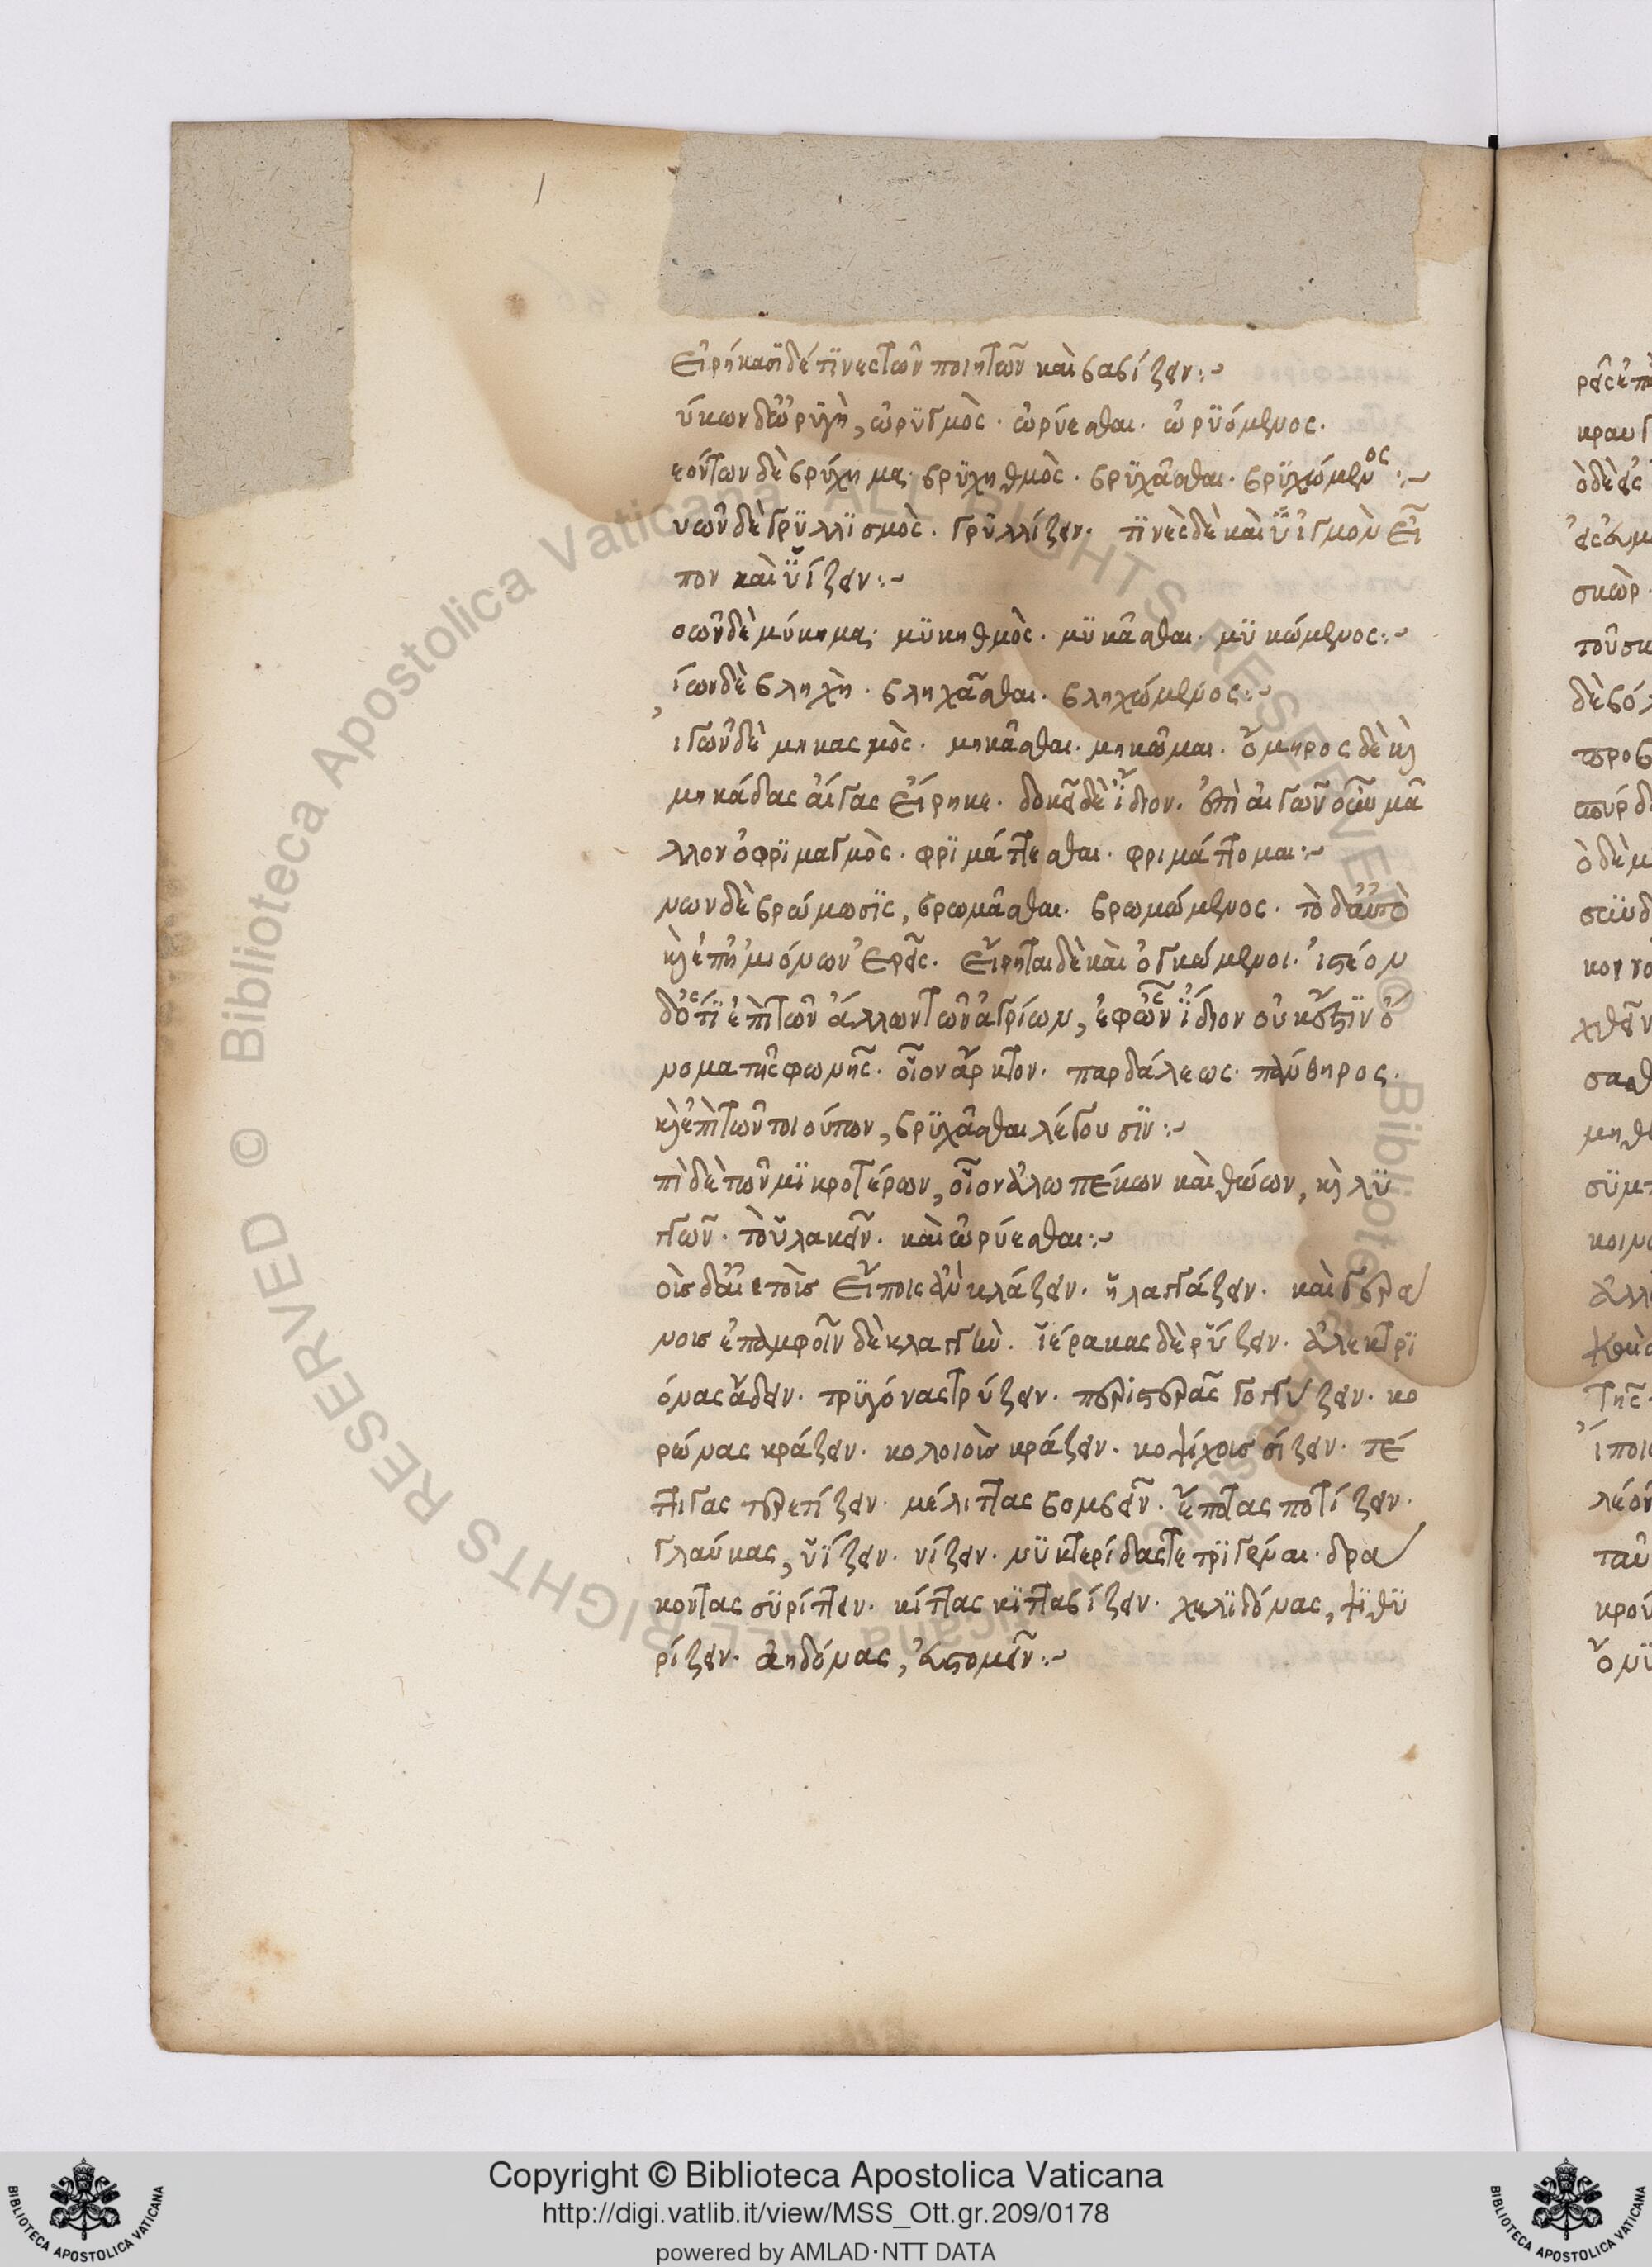 Εἰρήκασι δέ τινες τῶν ποιητῶν καὶ βαβίζειν:~
ύκων δ' ὠρυγὴ, ὠρυγμὸς. ὠρύεσθαι. ὠρυόμενος.
εόντων δὲ βρύχημα. βρυχηθμὸς. βρυχᾶσθαι. βρυχώμενος:~
υῶν δὲ γρυλλισμὸς. γρυλλίζειν. τινὲς δὲ καὶ ὑϊγμὸν εἶ
πον καὶ ὑΐζειν:~
οῶν δὲ μύκημα. μυκηθμὸς. μυκᾶσθαι. μυκώμενος:~
ίων δὲ βληχὴ. βληχᾶσθαι. βληχώμενος:~
ιγῶν δὲ μηκασμὸς. μηκᾶσθαι. μηκῶμαι. ὅμηρος δὲ καὶ
μηκάδας αἶγας εἴρηκε. δοκεῖ δὲ ἴδιον. ἐπὶ αἰγῶν εἶναι μᾶ
λλον ὁ φριμαγμὸς. φριμάττεσθαι. φριμάττομαι:~
νων δὲ βρώμωσις, βρωμᾶσθαι. βρωμώμενος. τὸ δ' αὐτὸ
καὶ ἐπὶ ἡμιόνων ἐρεῖς. εἴρηται δὲ καὶ ὀγκώμενοι. ἰστέον
δ' ὅτι ἐπὶ τῶν ἄλλων τῶν ἀγρίων, ἐφ' ὧν ἴδιον οὐκ ἔστιν ὄ
νομα τῆς φωνῆς. οἷον ἄρκτον. παρδάλεως. πάνθηρος.
καὶ ἐπὶ τῶν τοιούτων, βρυχᾶσθαι λέγουσιν:~
πὶ δὲ τῶν μικροτέρων, οἷον ἀλωπέκων καὶ θώων, καὶ λυ
γγῶν. τὸ ὑλακεῖν. καὶ ὠρύεσθαι:~
οὺς δ' ἀετοὺς εἴποις ἂν κλάζειν. ἢ λαγγάζειν. καὶ γερα
νους ἐπ' ἀμφοῖν δὲ κλαγγὴν. ἱέρακας δὲ ρύζειν. ἀλεκτρυ
όνας ἄδειν. τρυγόνας τρύζειν. περιστερᾶς γογγύζειν. κο
ρώνας κράζειν. κολοιοὺς κράζειν. κοψίχους σίζειν. τέ
ττιγας τερετίζειν. μέλιττας βομβεῖν. ἔποπας ποπίζειν.
γλαύκας, ὑΐζειν. νίζειν. νυκτερίδας τετριγέναι. δρά
κοντας συρίττειν. κίττας κιτταβίζειν. χελιδόνας, ψιθυ
ρίζειν. ἀηδόνας, ἀστομεῖν:~
Copyright © Biblioteca Apostolica Vaticana
http://digi.vatlib.it/view/MSS_Ott.gr.209/0178
powered by AMLAD·NTT DATA